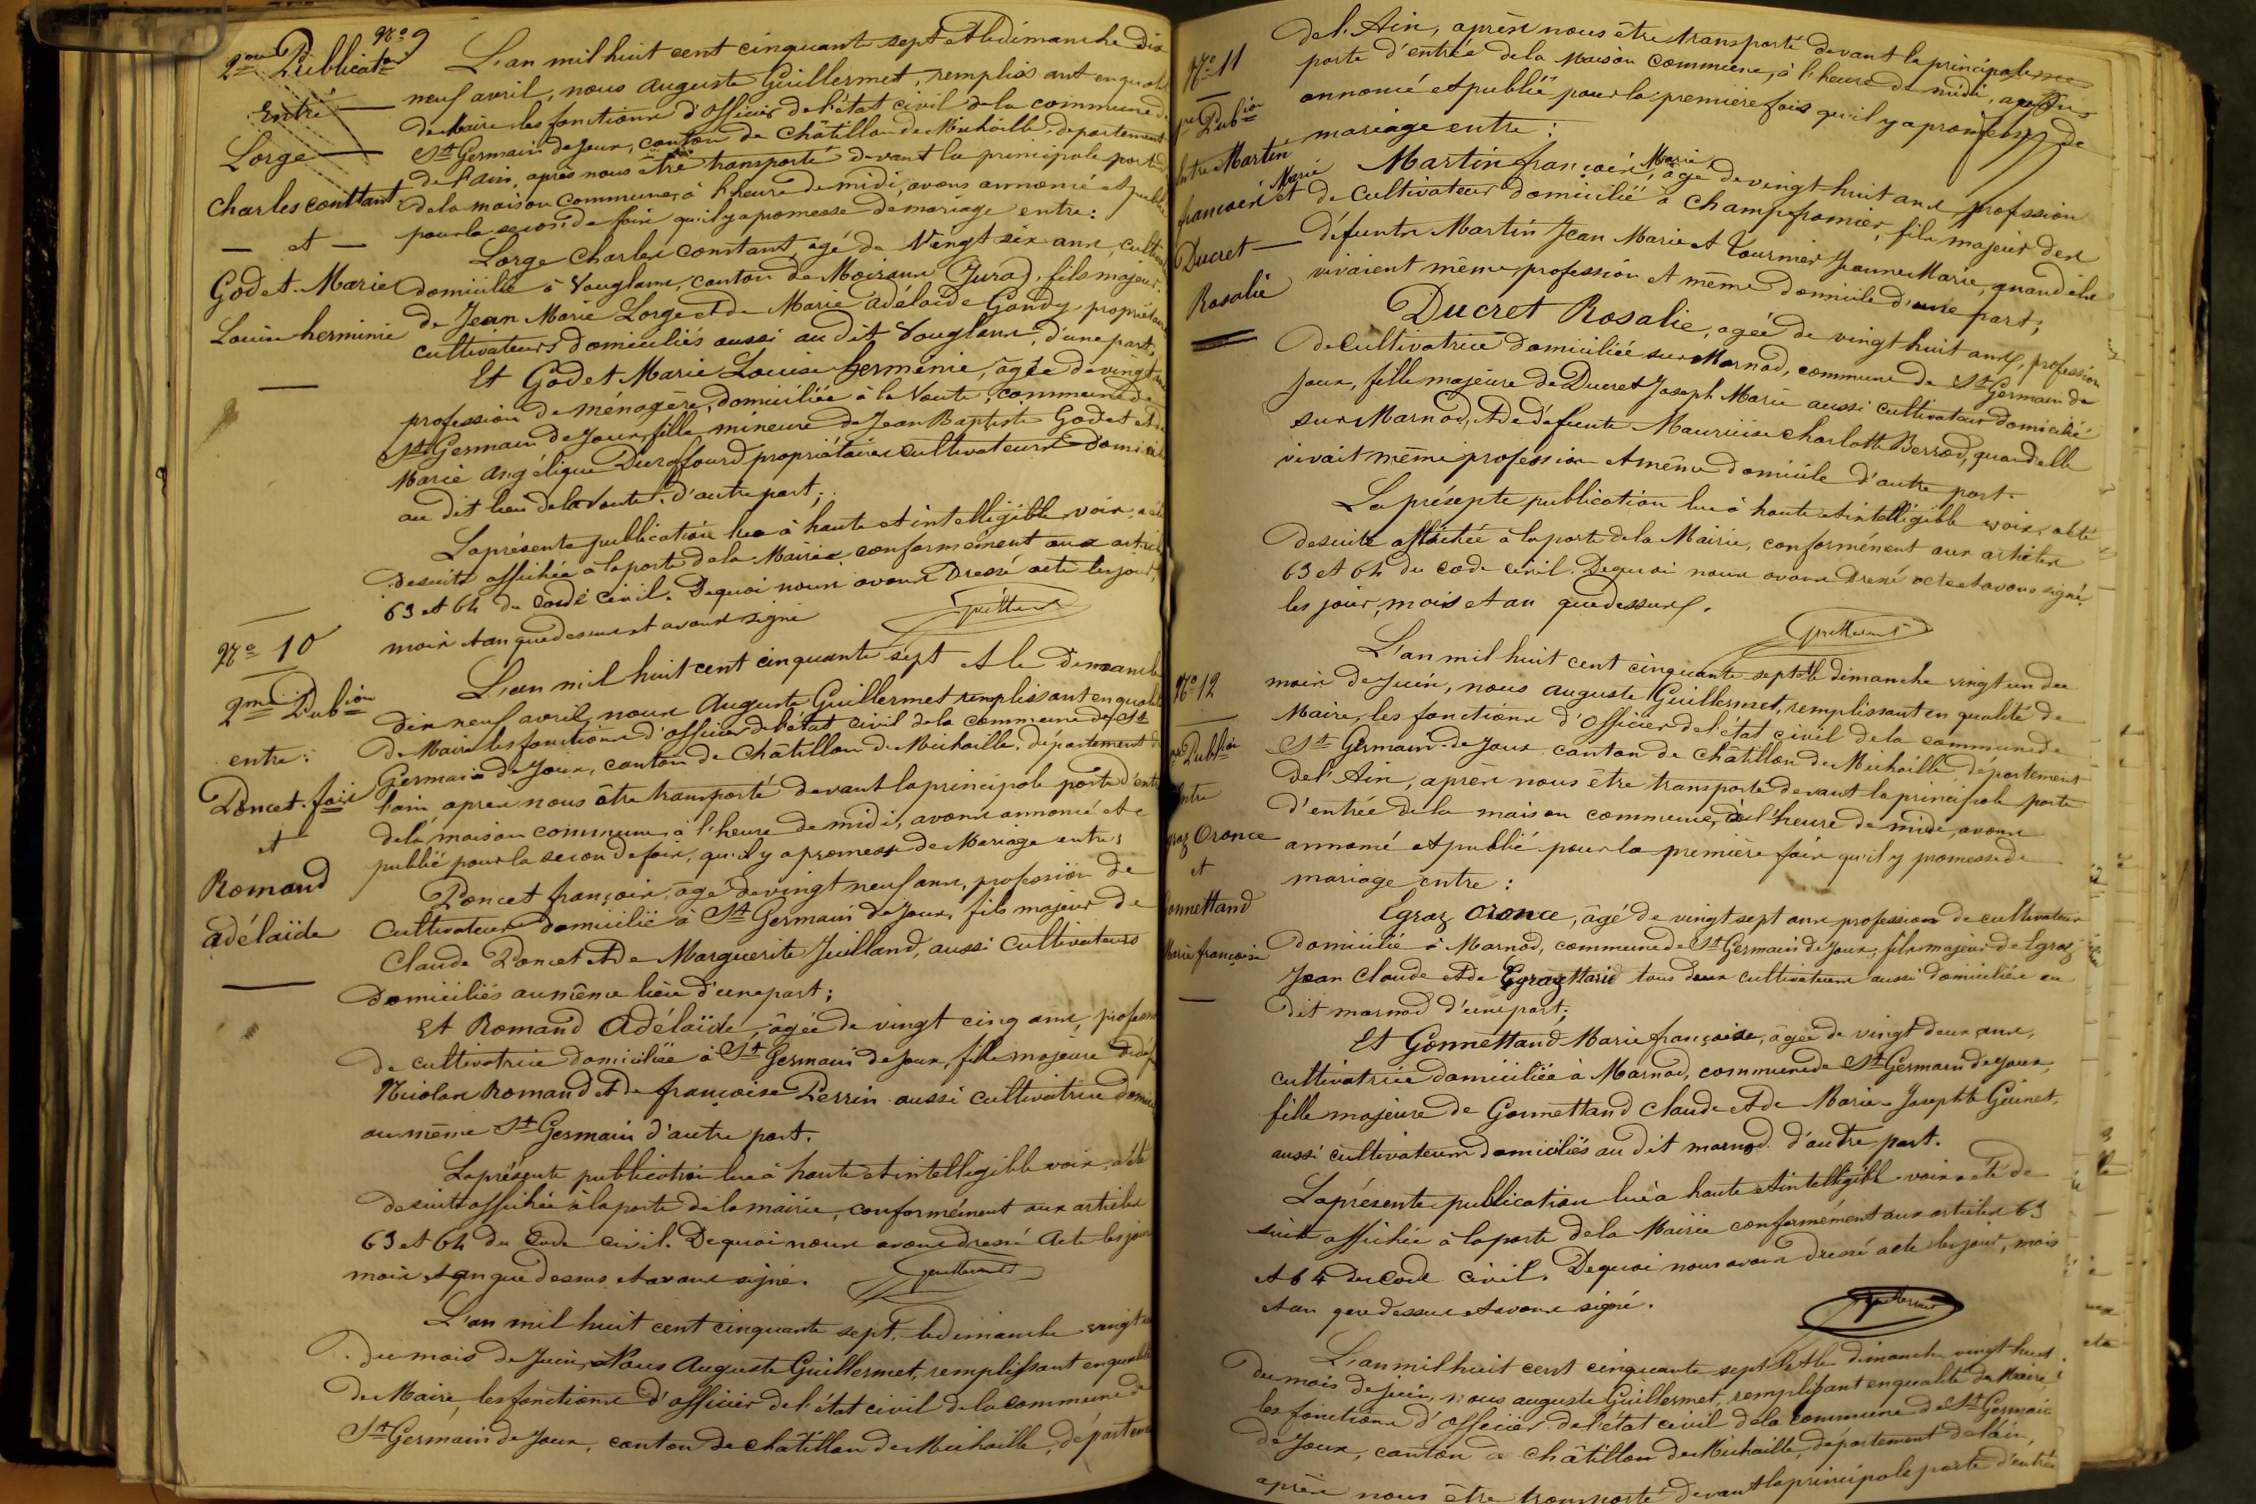 N° 9
2me Publicaton
Entre
Lorge
Charles conttant
et
Godet Marie
Louise herminie
L'an mil huit cent cinquante sept et le dimanche dix
neuf avril, nous Auguste Guillermet, remplissant en qualité
de Maire les fonctions d'officier de l'état civil de la commune de
St Germain de Joux, canton de Châtillon de Michaille, département
de l'ain, après nous être transporté devant la principale porte d
de la maison Commune, à l'heure de midi, avons annoncé et publié
pour la seconde fois qu'il y a promesse de mariage entre:
Lorge Charles constant, agé de Vingt six ans, cultiv
domicilié à Vouglans, canton de Moirans (Jura), fils majeur
de Jean Marie Lorge et de Marie adélaïde Gandy propriétaires
cultivateurs domiciliés aussi au dit Vouglans, d'une part,
Et Godet Marie Louise herménie, âgée de vingt
profession de ménagère, domiciliée à la Voute, commune de
St Germain de Joux, fille mineure de Jean Baptiste Godet et de
Marie Angélique Duraffourd propriétaires cultivateurs domicil
au dit lieu de la Voute, d'autre part;
La présente publication lue à haute et intelligible voix, a été
de suite affichée à la porte de la Mairie conformément aux articles
63 et 64 du Code Civil. De quoi nous avons Dressé acte les jour,
mois et an que dessus et avons signé
Guillermet
N° 10
2me Pubion
entre:
Poncet fois
et
Romand
adélaïde
L'an mil huit cent cinquante sept et le Dimanche
dix neuf avril, nous Auguste Guillermet remplissant en qualité
de Maire les fonctions d'officier de l'état civil de la commune de St
Germain de Joux, canton de Châtillon de Michaille, département de
l'ain après nous être transporté devant la principale porte d'ent
de la maison commune, à l'heure de midi, avons annoncé et
publié pour la seconde fois, qu'il y a promesse de Mariage entre;
Poncet françois, âgé de vingt neuf ans, profession de
Cultivateur domicilié à St Germain de Joux, fils majeur de
Claude Poncet et de Marguerite Juilland, aussi Cultivateurs
domiciliés au même lieu d'une part;
Et Romand Adélaïde, âgée de vingt cinq ans, profession
de cultivatrice domiciliée à St Germain de Joux, fille majeure de déf
Nicolas Romand et de françoise Perrin aussi cultivatrice domici
au même St Germain d'autre part.
La présente publication lue à haute et intelligible voix, a été
de suite affichée à la porte de la mairie, conformément aux articles
63 et 64 du Code civil. De quoi nous avons dressé Acte les jour
mois et an que dessus et avons signé.
Guillermet
L'an mil huit cent cinquante sept, le dimanche vingt un
du mois de Juin, Nous Auguste Guillermet, remplissant en qualité
de Maire, les fonctions d'officier de l'état civil de la commune de
St Germain de Joux, canton de Châtillon de Michaille, départeme
N° 11
1re Pubion
Entre Martin
françois Marie et
Ducret
Rosalie
de l'Ain, après nous être transporté devant la principale
porte d'entrée de la Maison Commune, à l'heure de midi, avons
annoncé et publié pour la première fois qu'il y a promesse de
mariage entre:
Martin françois Marie, âgé de vingt huit ans profession
de Cultivateur domicilié à Champfromier, fils majeur des
défunts Martin Jean Marie et Tournier Jeanne Marie, quand ils
vivaient même profession et même domicile d'une part;
Ducret Rosalie, agée de vingt huit ans, profession
de Cultivatrice domiciliée sur Marnod, commune de St Germain de
Joux, fille majeure de Ducret Joseph Marie aussi cultivateur domicilié
sur Marnod, et de défunte Mauricise Charlotte Berrod, quand elle
vivait même profession et même domicile d'autre part.
La présente publication lue à haute et intelligible voix, a été
de suite affichée à la porte de la Mairie, conformément aux articles
63 et 64 du code civil. De quoi nous avons dressé acte et avons signé
les jour, mois et an que dessus.
Guillermet
N° 12
1re Publion
Entre
Egraz Oronce
et
Gonnettand
Marie françoise
L'an mil huit cent cinquante sept et le dimanche vingt un du
mois de Juin, nous Auguste Guillermet, remplissant en qualité de
Maire, les fonctions d'officier de l'état civil de la commune de
St Germain de Joux canton de Châtillon de Michaille, département
de l'Ain, après nous être transporté devant la principale porte
d'entrée de la maison commune, à l'heure de midi, avons
annoncé et publié pour la première fois qu'il y promesse de
mariage entre:
Egraz Oronce, âgé de vingt sept ans profession de cultivateur
domicilié à Marnod, commune de St Germain de Joux, fils majeur de Egraz
Jean Claude et de Egraz Marie tous deux cultivateurs aussi domiciliés au
dit marnod d'une part;
Et Gonnettand Marie françoise, âgée de vingt deux ans,
cultivatrice domiciliée à Marnod, commune de St Germain de Joux,
fille majeure de Gonnettand Claude et de Marie Josephte Guinet,
aussi cultivateurs domiciliés au dit marnod d'autre part.
La présente publication lue à haute et intelligible voix a été de
suite affichée à la porte de la Mairie conformément aux articles 63
et 64 du Code Civil. De quoi nous avons dressé acte les jour, mois
et an que dessus et avons signé.
Guillermet
L'an mil huit cent cinquante sept et le dimanche vingt huit
du mois de juin, nous auguste Guillermet, remplissant en qualité de Maire
les fonctions d'officier de l'état civil de la commune de St Germain
de Joux, canton de Châtillon de Michaille, département de l'ain,
après nous être transporté devant la principale porte d'entrée